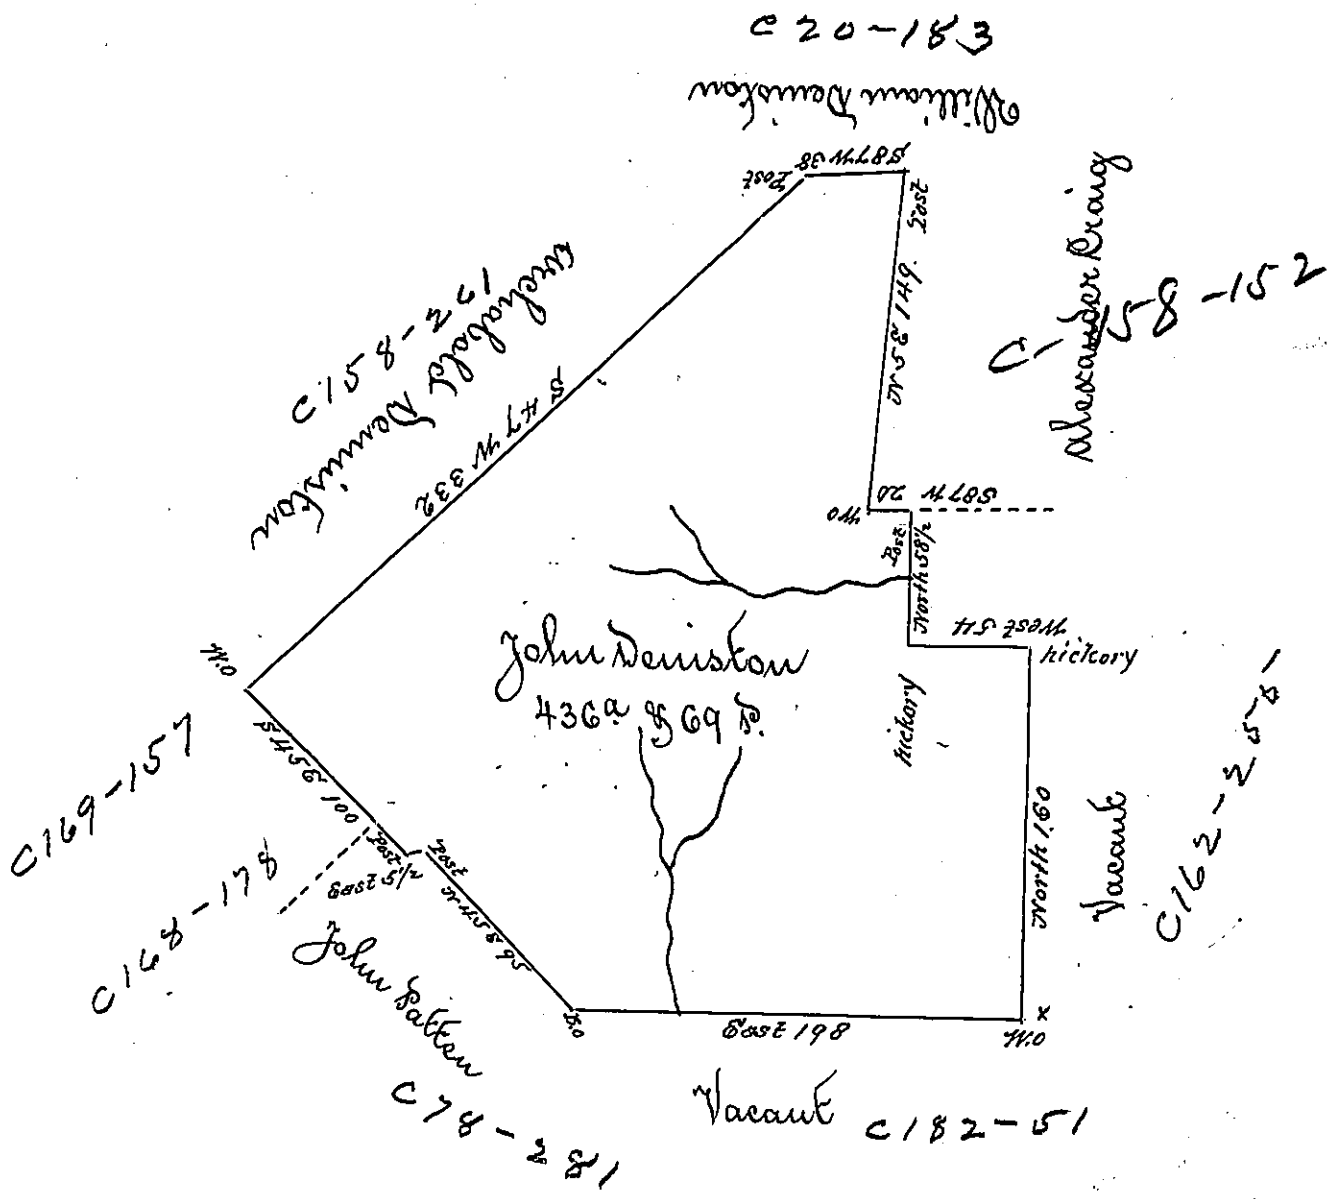 C 20-183
William Deniston
S87W 38
Post
Post
N 3 E 149.
Alexander Craig
C-158-152
C158-261
Archabald Denniston
S 47 W 332
S87W
20
W.O
Post
North 58 1/2
West 54
hickory
hickory
W.O
John Deniston
436a & 69 P.
S 45 E 100
C169-157
Post
East 5 1/2
Post
C168-178
John Patten
C78-281
W.O
East 198
W.O
x
North 160
Vacant
Vacant
C182-51